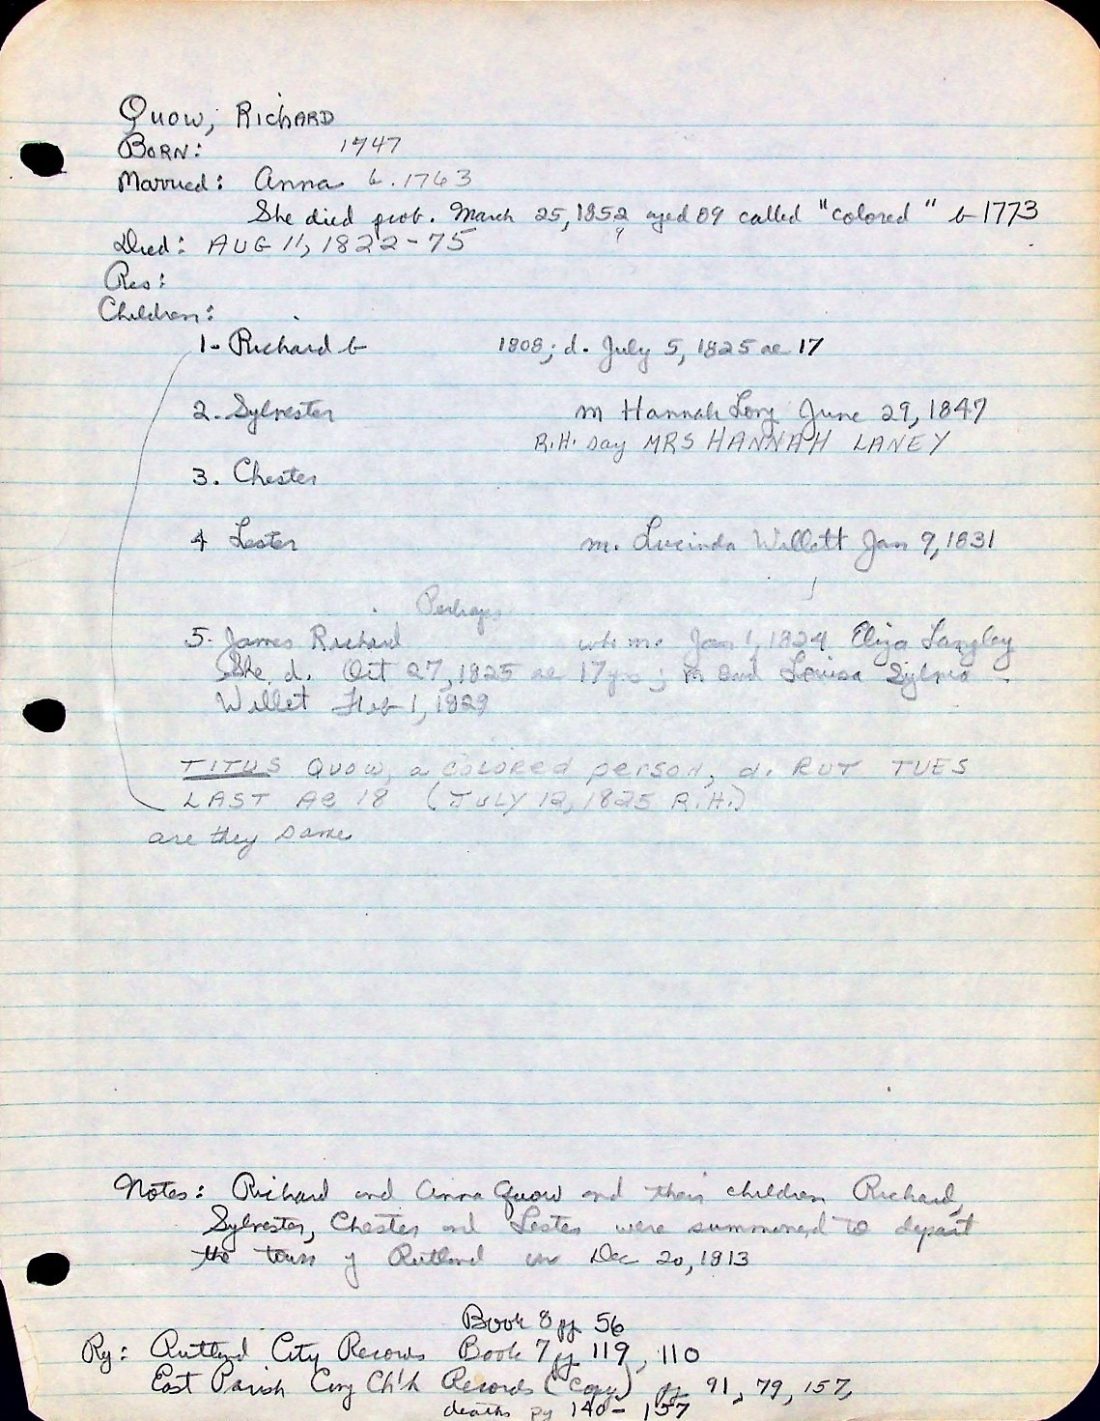 Quow, Richard
Born: 1747
Married: Anna b. 1763
She died prob. March 25, 1852 aged 89 called "colored" b 1773
?
Died: AUG 11, 1822 - 75
Res:
Children:
1- Richard b 1808; d. July 5, 1825 ae 17
2. Sylvester m Hannah Long June 29, 1847
R.H. say MRS HANNAH LANEY
3. Chester
4 Lester m. Lucinda Willett Jan 9, 1831
Perhaps
5. James Richard who m. Jan 1, 1824 Eliza Langley
She d. Oct 27, 1825 ae 17yrs; m 2nd Louisa Sylvia
Willet Feb 1, 1829
TITUS Quow, a colored person, d. RUT TUES
LAST AE 18 (JULY 12, 1825 R.H.)
are they same
Notes: Richard and Anna Quow and their children Richard,
Sylvester, Chester and Lester were summoned to depart
the town of Rutland on Dec 20, 1813
Book 8 pg 56
Rutland City Records Book 7 pg 119, 110
East Parish Cong Ch'h Records (copy) pg 91, 79, 157,
deaths pg 140 - 157